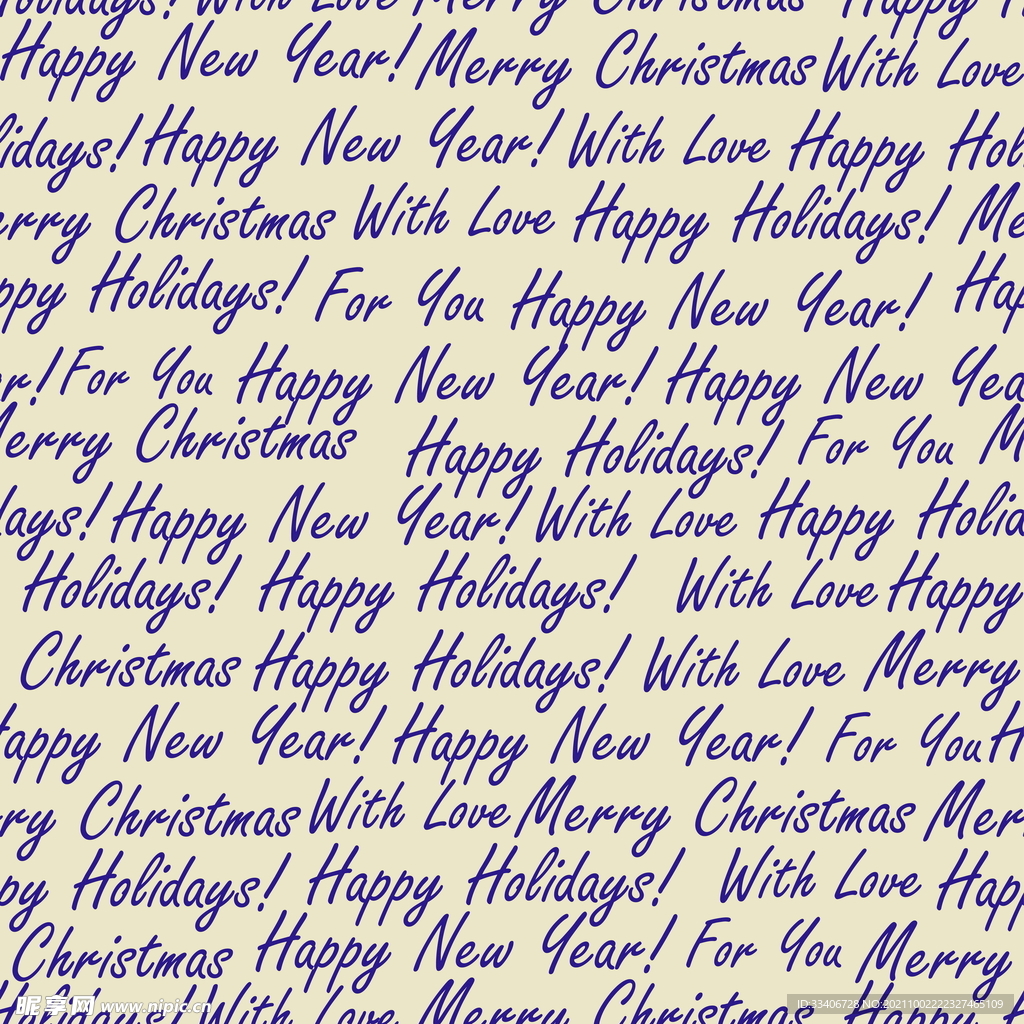 Holidays! With Love Merry Christmas Happy
Happy New Year! Merry Christmas With Love
lidays! Happy New Year! With Love Happy Hol
erry Christmas With Love Happy Holidays! Me
ppy Holidays! For You Happy New Year! Hap
ar! For You Happy New Year! Happy New Yea
Merry Christmas Happy Holidays! For You M
days! Happy New Year! With Love Happy Holid
Holidays! Happy Holidays! With Love Happy
Christmas Happy Holidays! With Love Merry
Happy New Year! Happy New Year! For You H
rry Christmas With Love Merry Christmas Mer
py Holidays! Happy Holidays! With Love Happ
Christmas Happy New Year! For You Merry
Holidays! With Love Merry Christmas Happy H
昵享网 www.nipic.cn
ID:33406728 NO:20211002222327465109